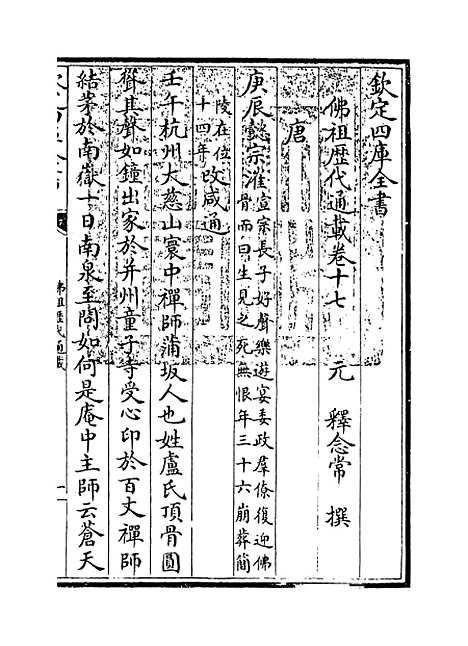 欽定四庫全書
佛祖歷代通載卷十七
元 釋念常 撰
唐
庚辰懿宗漼宣宗長子好聲樂遊宴委政羣倐復迎佛
骨而曰生見之死無恨年三十六崩葬簡
陵在位
十四年
改咸通
壬午杭州大慈山寰中禪師蒲坂人也姓盧氏頂骨圓
聳其聲如鐘出家於并州童子寺受心印於百丈禪師
結茅於南嶽一日南泉至問如何是庵中主師云蒼天
佛祖歷代通載
一